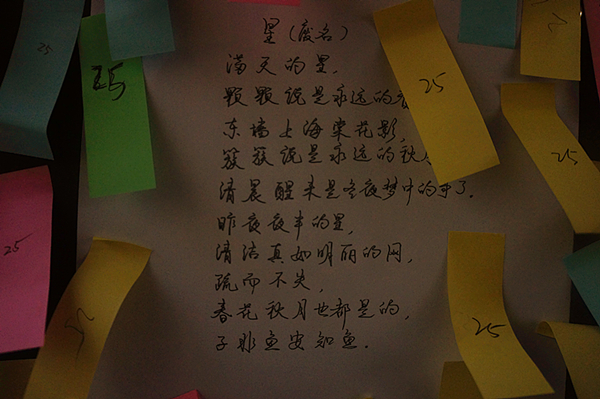 星(废名)
满天的星,
颗颗说是永远的
东墙上海棠花影,
簇簇说是永远的秋
清晨醒来是冬夜梦中的事了.
昨夜夜半的星,
清洁真如明丽的网,
疏而不失,
春花秋月也都是的,
子非鱼安知鱼.
25
25
25
25
25
25